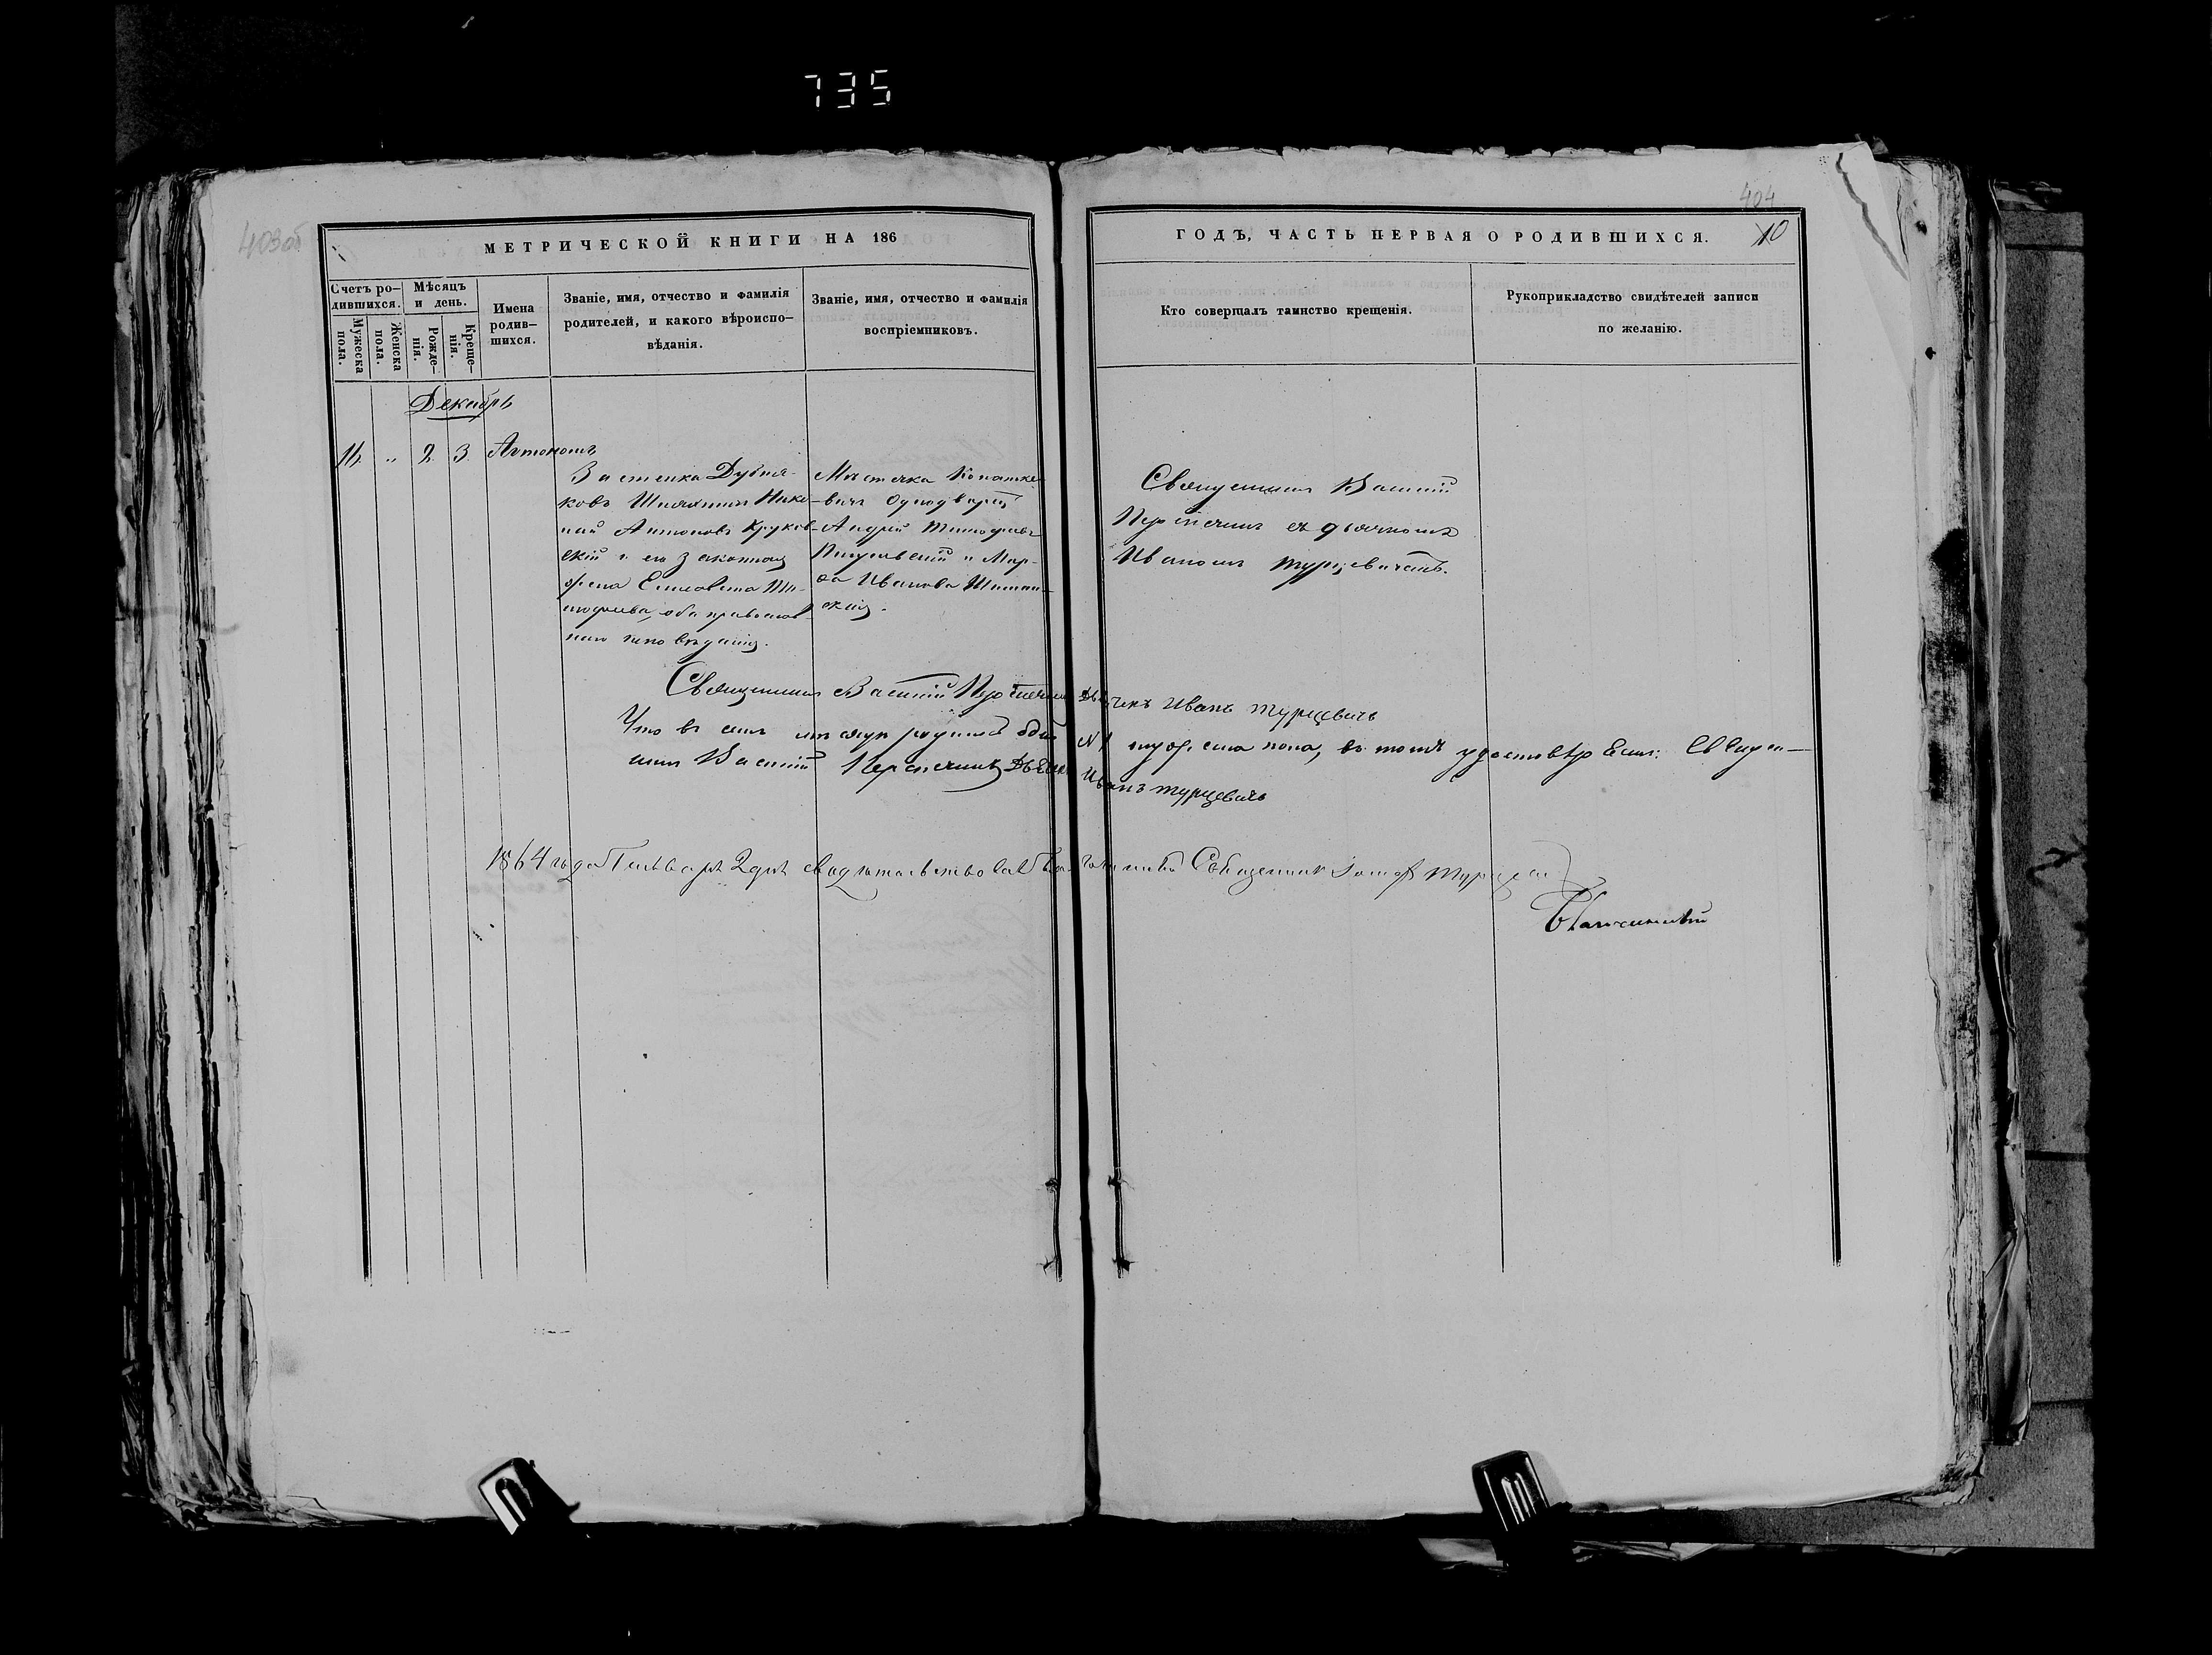 735
403об
404
МЕТРИЧЕСКОЙ КНИГИ НА 186
ГОДЪ, ЧАСТЬ ПЕРВАЯ О РОДИВШИХСЯ.
10
Счетъ ро-
дившихся.
Мужеска
пола.
Женска
пола.
Мѣсяцъ
и день.
Рожде-
нія.
Креще-
нія.
Имена
родив-
шихся.
Званіе, имя, отчество и фамилія
родителей, и какого вѣроиспо-
вѣданія.
Званіе, имя, отчество и фамилія
воспріемниковъ.
Кто совершалъ таинство крещенія.
Рукоприкладство свидѣтелей записи
по желанію.
Декабрь
" 2 3 Автономъ
Застенка Дубня-
ковъ Шляхтичъ Ники-
Антоновъ Круков-
скій и его законная
жена Елисавета Ти-
мофеева, оба православ-
наго исповѣданія.
Мѣстечка Копатке-
вичъ Однодворецъ
Андрей Тимофеевъ
и Мар-
ѳа Иванова
Священникъ Василій
съ дьячкомъ
Иваномъ Турцевичемъ.
Священникъ Василій
Дьячекъ Иванъ Турцевичъ
Что въ семъ мѣсяцѣ родился одинъ № 1 мужеска пола, въ томъ удостовѣряемъ: Священ-
никъ Василій Дьячекъ Иванъ Турцевичъ
1864 года Генваря 2 дня свидѣтельствовалъ Благочинный Священникъ